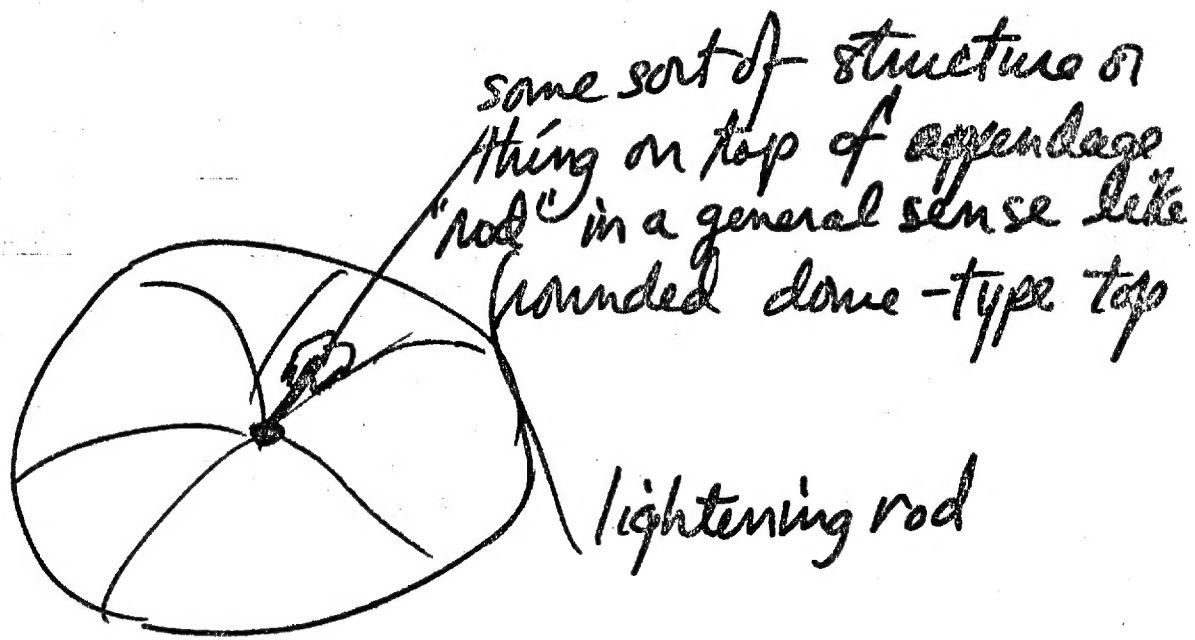 some sort of structure or
thing on top of appendage
"rod" in a general sense like
rounded dome-type top
lightening rod